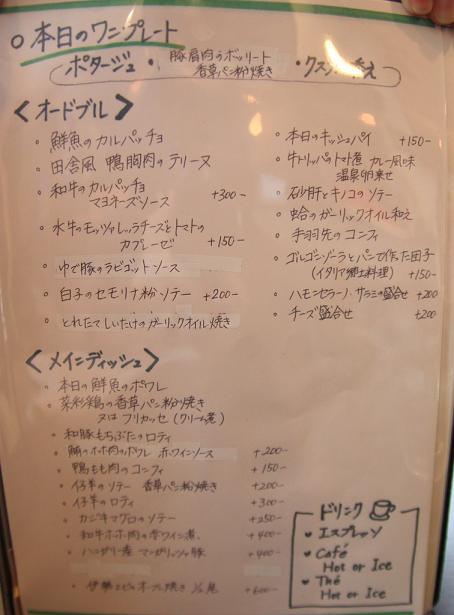 ○ 本日のワンプレート
ポタージュ・ 豚肩肉のボッリート
香草パン粉焼き ・クスクス添え
<オードブル>
・鮮魚のカルパッチョ
・田舎風 鴨胸肉のテリーヌ
・和牛のカルパッチョ
マヨネーズソース +300-
・水牛のモッツァレッラチーズとトマトの
カプレーゼ +150-
・ゆで豚のラビゴットソース
・白子のセモリナ粉ソテー +200-
・とれたてしいたけのガーリックオイル焼き
・本日のキッシュパイ +150-
・牛トリッパのトマト煮 カレー風味
温泉卵乗せ
・砂肝とキノコのソテー
・蛤のガーリックオイル和え
・手羽先のコンフィ
・ゴルゴンゾーラとパンで作った団子
(イタリア郷土料理) +150-
・ハモンセラーノ・サラミの盛合せ +200
・チーズ盛合せ +200
<メインディッシュ>
・本日の鮮魚のポワレ
・菜彩鶏の香草パン粉焼き
又は フリカッセ(クリーム煮)
・和豚もちぶたのロティ
・ホホ肉のポワレ 赤ワインソース +200-
・鴨もも肉のコンフィ +150-
・仔羊のソテー 香草パン粉焼き +200-
・仔羊のロティ +300-
・カジキマグロのソテー +250-
・和牛ホホ肉の赤ワイン煮 +400-
・ハンガリー産 マンガリッツァ豚 +400-
・伊勢エビのオーブン焼き 1/2尾 +600-
ドリンク
♥ エスプレッソ
♥ Café
Hot or Ice
♥ Thé
Hot or Ice